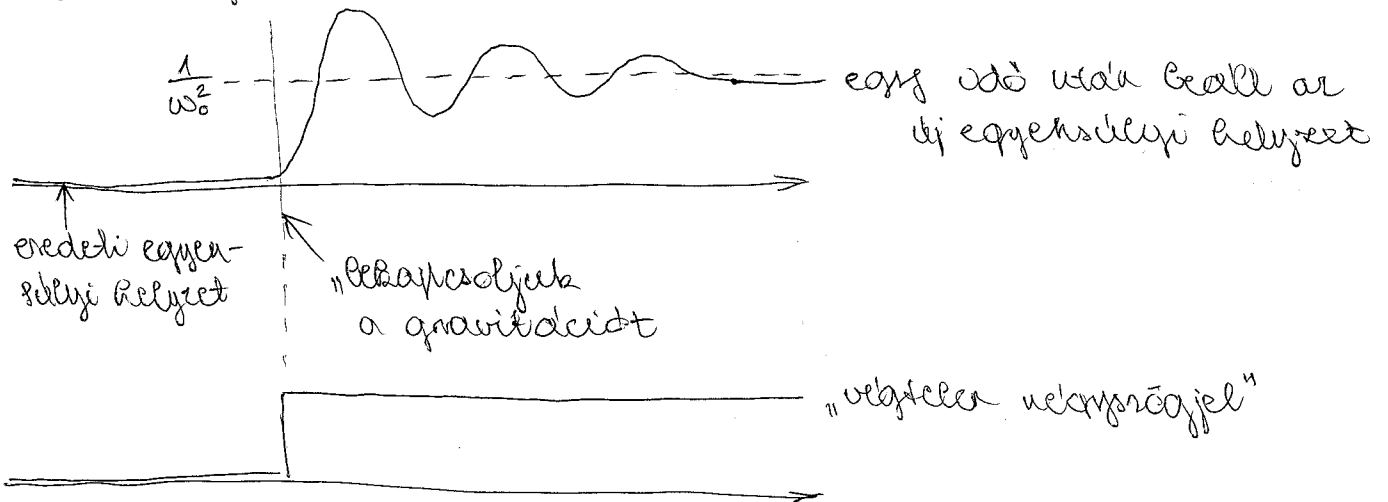 1/ω₀²
egy idő után beáll az
új egyensúlyi helyzet
eredeti egyen-
súlyi helyzet
„bekapcsoljuk
a gravitációt
„végtelen négyszögjel"